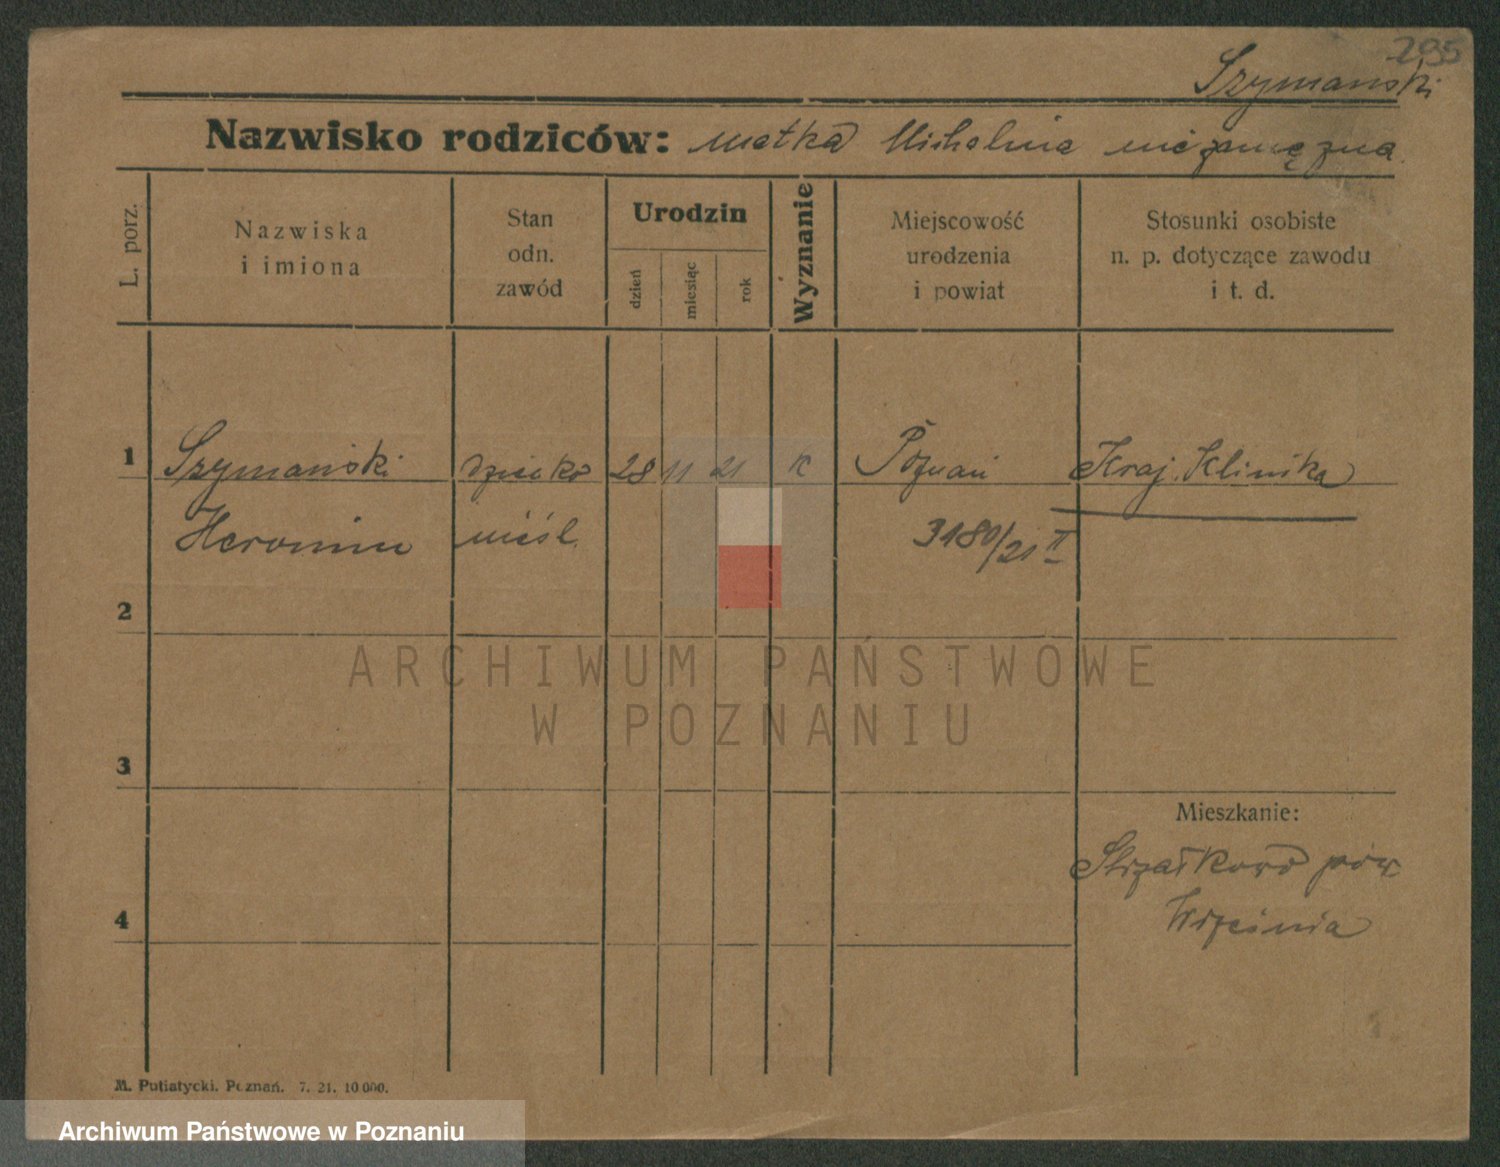 295
Szymański
Nazwisko rodziców: matka Michalina niezamężna
L. porz.
Nazwiska
i imiona
Stan
odn.
zawód
Urodzin
dzień
miesiąc
rok
Wyznanie
Miejscowość
urodzenia
i powiat
Stosunki osobiste
n. p. dotyczące zawodu
i t. d.
1 Szymański dziecko 28 11 21 K Poznań Kraj. Klinika
Heronim nieśl. 3180/21 II
2
ARCHIWUM PAŃSTWOWE
W POZNANIU
3
Mieszkanie:
Strzałkowo pow
Września
4
M. Putiatycki. Poznań. 7. 21. 10 000.
Archiwum Państwowe w Poznaniu